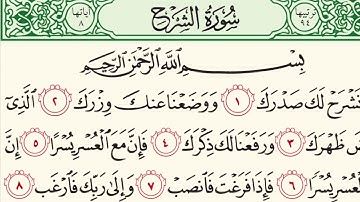 ترتيبها ٩٤ سُورَةُ الشَّرْحِ آياتها ٨
بِسْمِ اللَّهِ الرَّحْمَٰنِ الرَّحِيمِ
نَشْرَحْ لَكَ صَدْرَكَ ١ وَوَضَعْنَا عَنكَ وِزْرَكَ ٢ الَّذِي
ظَهْرَكَ ٣ وَرَفَعْنَا لَكَ ذِكْرَكَ ٤ فَإِنَّ مَعَ الْعُسْرِ يُسْرًا ٥ إِنَّ
الْعُسْرِ يُسْرًا ٦ فَإِذَا فَرَغْتَ فَانصَبْ ٧ وَإِلَىٰ رَبِّكَ فَارْغَب ٨